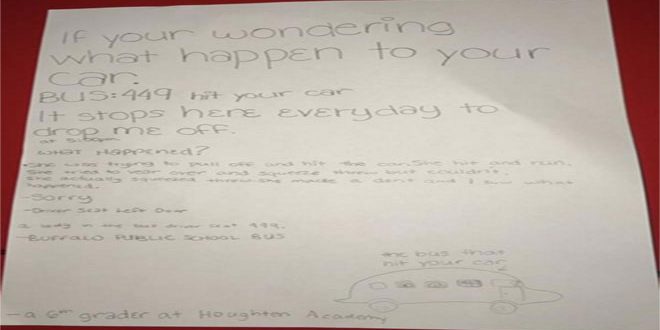 If your wondering
what happen to your
car.
BUS: 449 hit your car
It stops here everyday to
drop me off.
at 5:00pm
what Happened?
•She was trying to pull off and hit the car. She hit and run.
She tried to veer over and squeeze threw but couldn't.
She actually squeezed threw she made a dent and I saw what
happened.
-Sorry
-Driver Seat Left Door
a lady in the bus driver seat 499.
-BUFFALO PUBLIC SCHOOL BUS
the bus that
hit your car
-a 6th grader at Houghton Academy